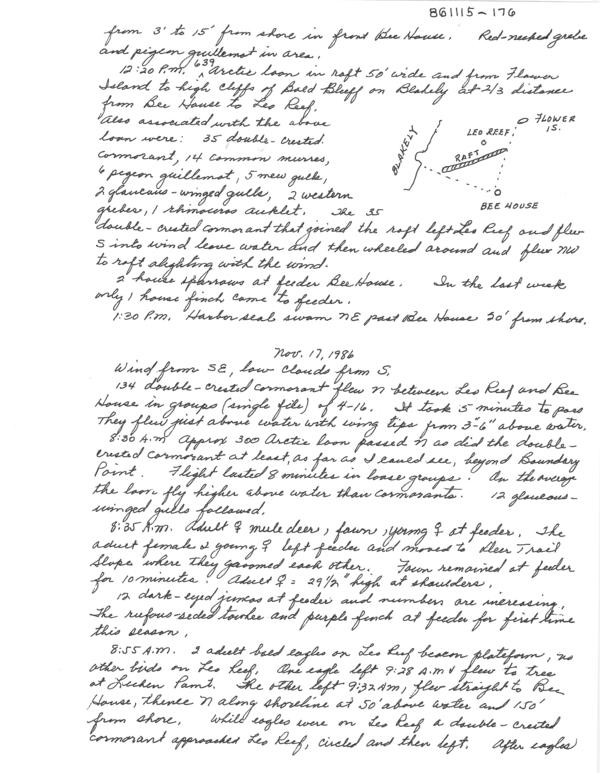 861115-176
from 3' to 15' from shore in front Bee House. Red-necked grebe
and pigeon guillemot in area.
12:20 P.M. 639 Arctic loon in raft 50' wide and from Flower
Island to high cliffs of Bald Bluff on Blakely at 2/3 distance
from Bee House to Leo Reef.
Also associated with the above
loon were: 35 double-crested
cormorant, 14 common murres,
6 pigeon guillemot, 5 mew gulls,
2 glaucous-winged gulls, 2 western
grebes, 1 rhinoceros auklet. The 35
FLOWER
IS.
LEO REEF
RAFT
BLAKELY
BEE HOUSE
double-crested cormorant that joined the raft left Leo Reef and flew
S into wind leave water and then wheeled around and flew NW
to raft alighting with the wind.
2 house sparrows at feeder Bee House. In the last week
only 1 house finch came to feeder.
1:30 P.M. Harbor seal swam NE past Bee House 20' from shore.
Nov. 17, 1986
Wind from SE, low clouds from S.
134 double-crested cormorant flew N between Leo Reef and Bee
House in groups (single file) of 4-16. It took 5 minutes to pass
They flew just above water with wing tips from 3-6" above water.
8:30 A.M. Approx 300 Arctic loon passed N as did the double-
crested cormorant at least, as far as I could see, beyond Boundary
Point. Flight lasted 8 minutes in loose groups. On the average
the loon fly higher above water than cormorants. 12 glaucous-
winged gulls followed.
8:35 A.M. Adult ♀ mule deer, fawn, young ♀ at feeder. The
adult female & young ♀ left feeder and moved to Deer Trail
Slope where they groomed each other. Fawn remained at feeder
for 10 minutes. Adult ♀ = 29 1/2" high at shoulders.
12 dark-eyed juncos at feeder and numbers are increasing.
The rufous-sided towhee and purple finch at feeder for first time
this season.
8:55 A.M. 2 adult bald eagles on Leo Reef beacon platform, no
other birds on Leo Reef. One eagle left 9:28 A.M & flew to tree
at Lichen Point. The other left 9:32 AM, flew straight to Bee
House, thence N along shoreline at 50' above water and 150'
from shore. While eagles were on Leo Reef a double-crested
cormorant approached Leo Reef, circled and then left. After eagles